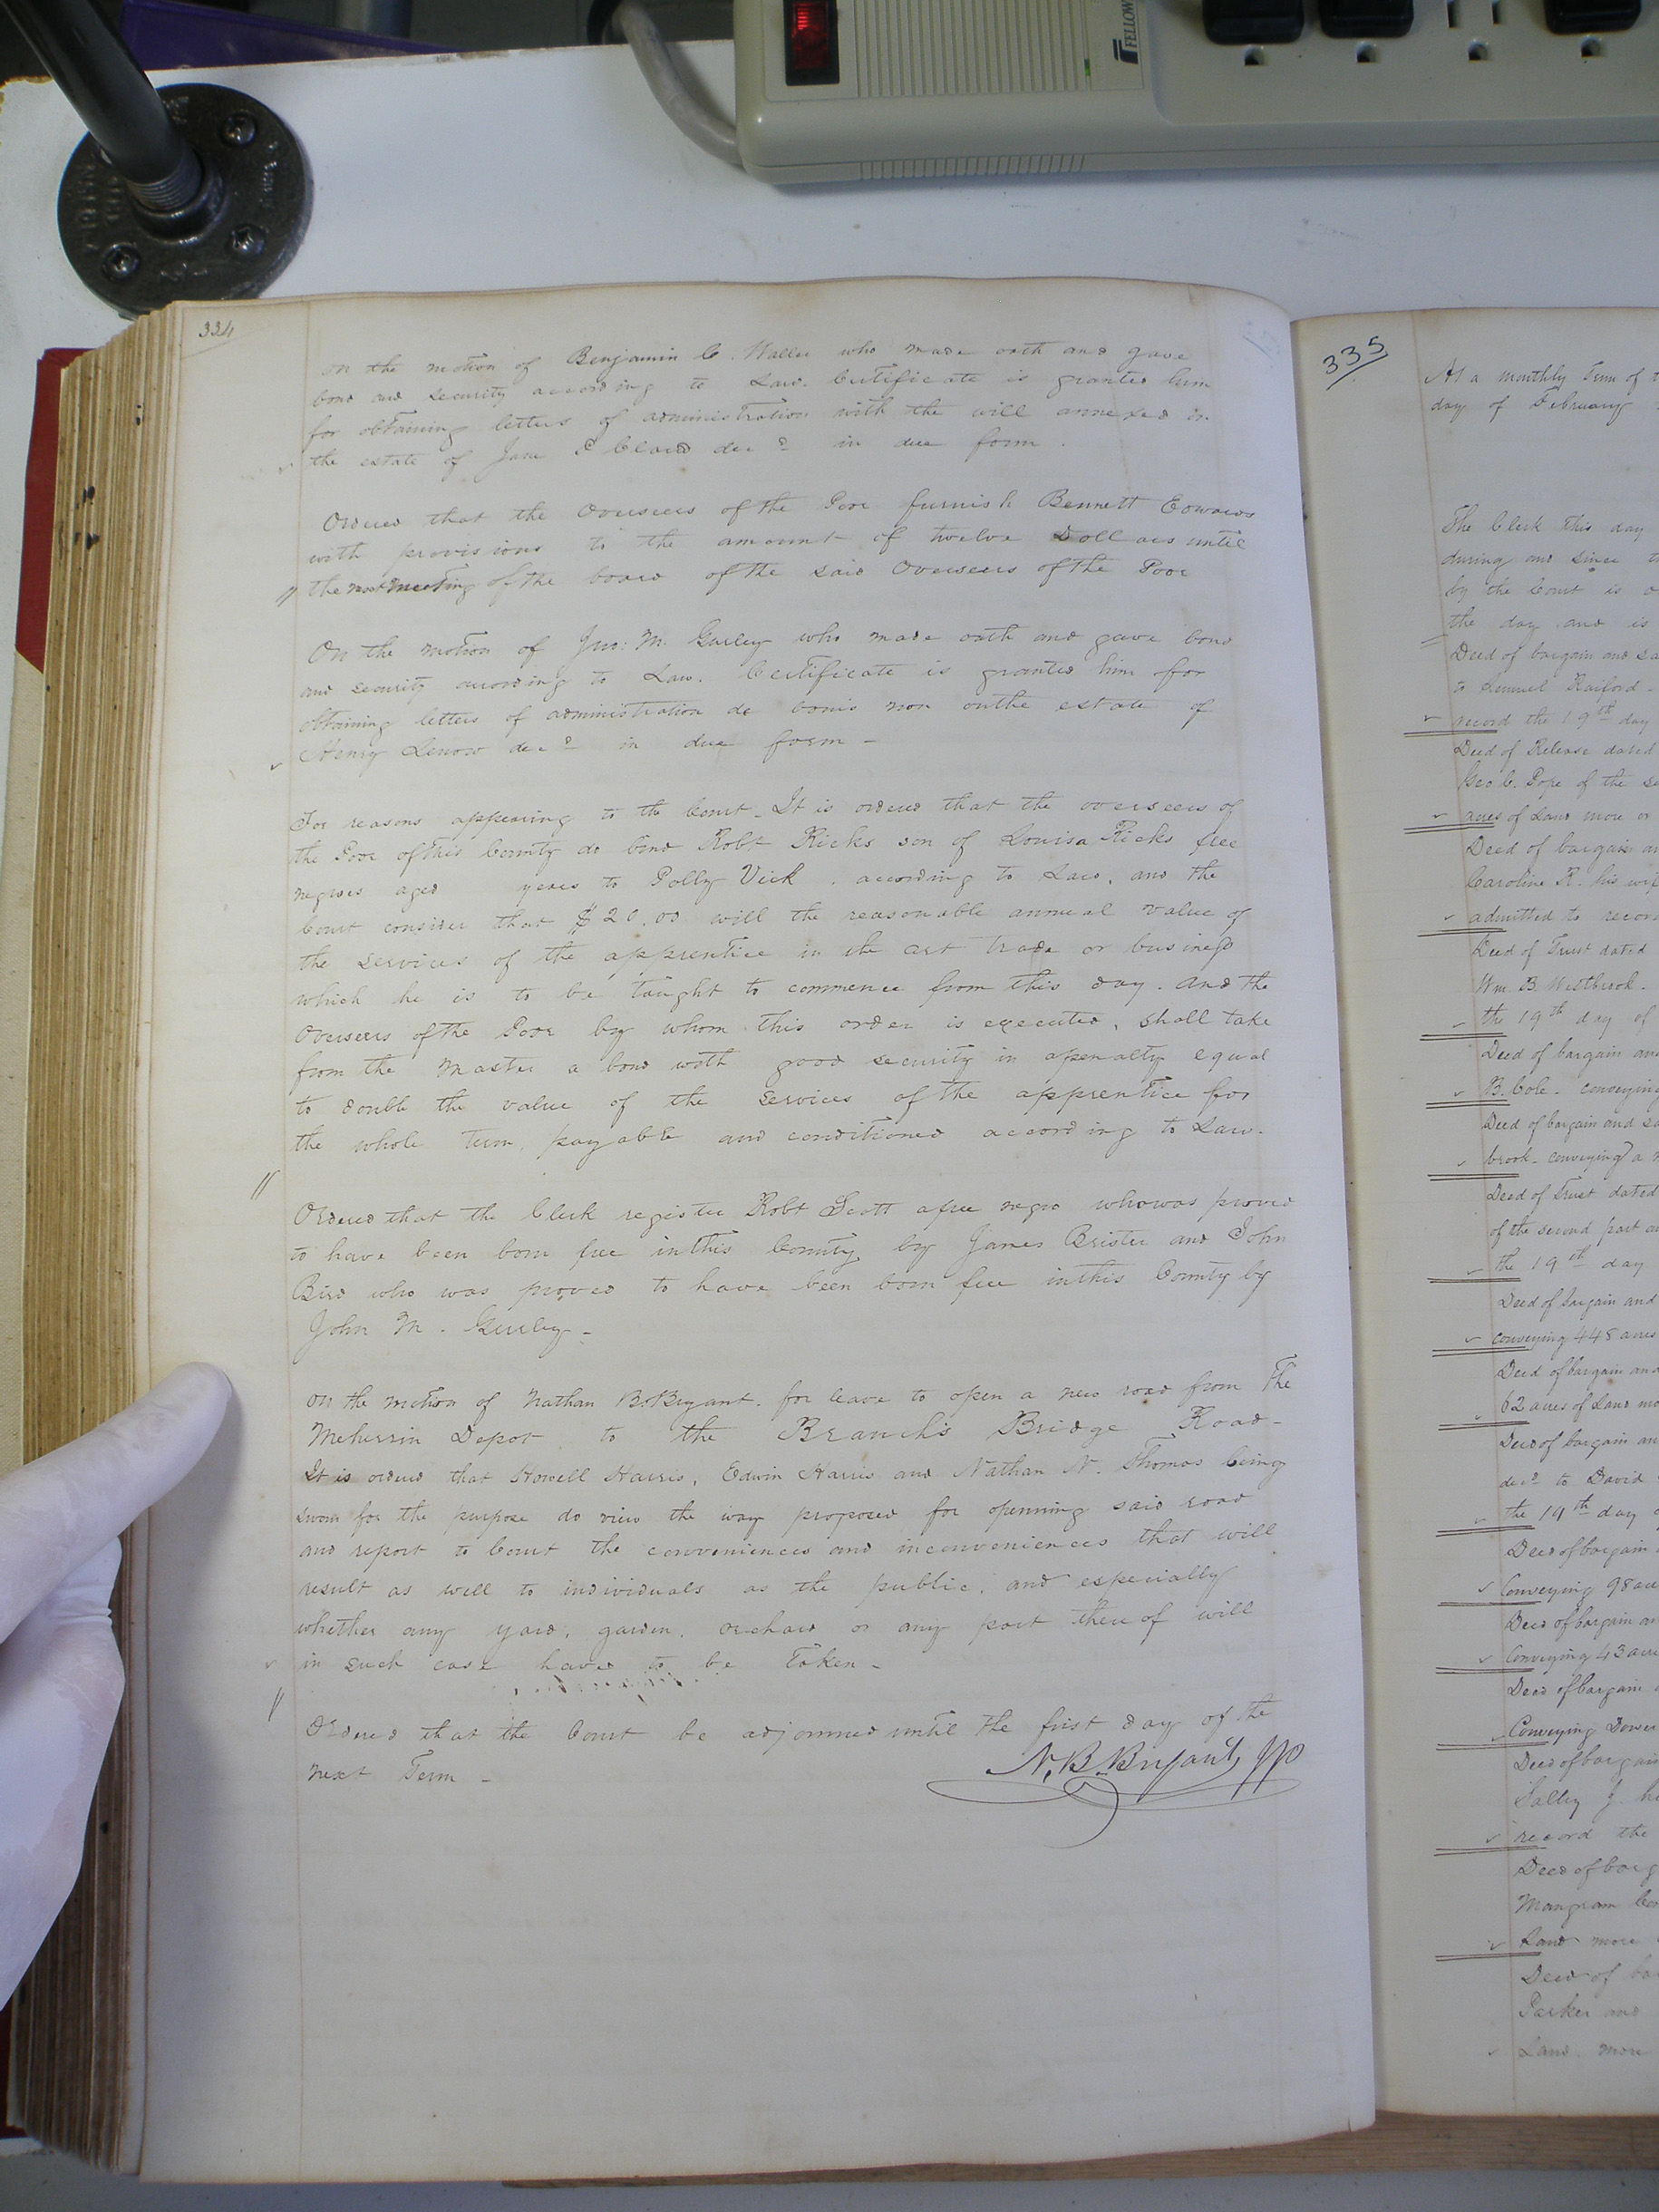 FELLOW
334
On the motion of Benjamin C. Waller who made oath and gave
bond and security according to Law. Certificate is granted him
for obtaining letters of administration with the will annexed on
the estate of Jane P Claud decd in due form.
Ordered that the Overseers of the Poor furnish Bennett Edwards
with provisions to the amount of twelve Dollars until
the next meeting of the board of the said Overseers of the Poor
On the motion of Jno: M. Gurley who made oath and gave bond
and security according to Law. Certificate is granted him for
obtaining letters of administration de bonis non on the estate of
Henry Lenow decd in due form -
For reasons appearing to the Court. It is ordered that the overseers of
the Poor of this County do bind Robt Ricks son of Louisa Ricks free
negroes aged years to Polly Vick . according to Law, and the
Court consider that $20.00 will the reasonable annual value of
the services of the apprentice in the art trade or business
which he is to be taught to commence from this day. And the
Overseers of the Poor by whom this order is executed, shall take
from the Master a bond with good security in a penalty equal
to double the value of the services of the apprentice for
the whole term, payable and conditioned according to Law.
Ordered that the Clerk register Robt Scott a free negro who was proved
to have been born free in this County by James Brister and John
Bird who was proved to have been born free in this County by
John M. Gurley -
On the motion of Nathan B. Bryant. for leave to open a new road from The
Meherrin Depot to the Branch's Bridge Road -
It is ordered that Howell Harris, Edwin Harris and Nathan N. Thomas being
sworn for the purpose do view the way proposed for openning said road
and report to Court the conveniences and inconveniences that will
result as well to individuals as the public, and especially
whether any yard, garden, orchard or any part there of will
in such case have to be taken -
Ordered that the Court be adjourned until the first day of the
next Term -
N. B. Bryant, JP
335
At a monthly Term of
day of February
The Clerk this day
during and since
by the Court is
the day and is
Deed of bargain and
to Lemuel Raiford -
record the 19th day
Deed of Release dated
Geo C. Pope of the
acres of Land more or
Deed of bargain
Caroline R. his
admitted to
Deed of Trust dated
Wm B. Westbrook -
the 19th day of
Deed of bargain
B. Cole - conveying
Deed of bargain and
brook - conveying a
Deed of Trust dated
of the second part
the 19th day
Deed of bargain and
conveying 448 acres
Deed of bargain and
62 acres of Land
Deed of bargain
decd to David
the 19th day
Deed of bargain
Conveying 98
Deed of bargain
Conveying 43
Deed of bargain
Conveying
Deed of bargain
Sally J.
record the
Deed of
Mangram
Land more
Deed of
Parker and
Land . more